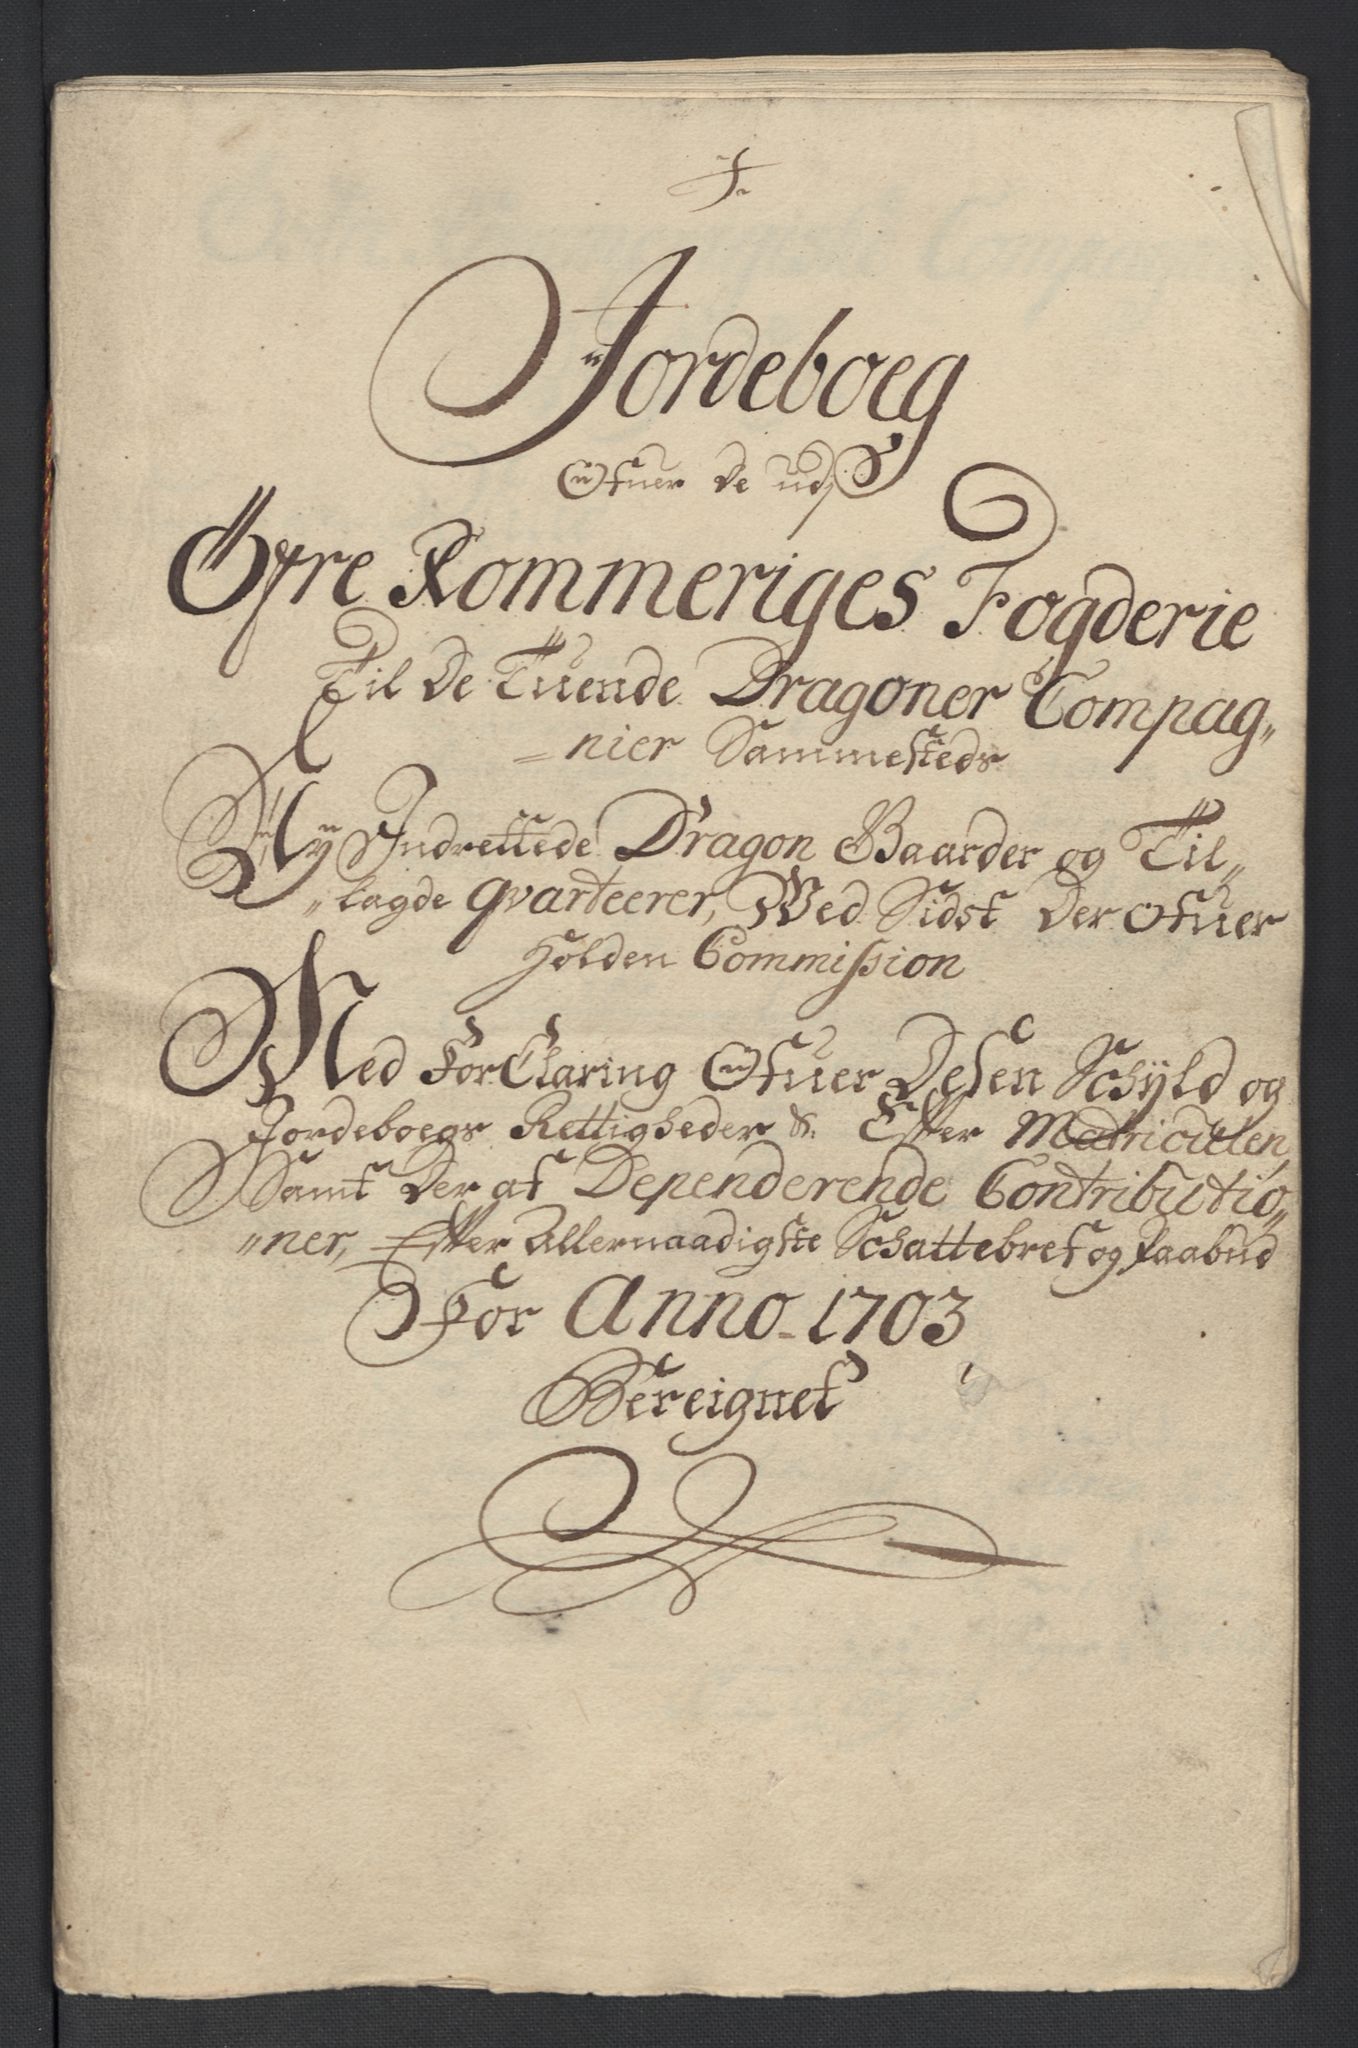 Jordeboeg
Ofuer De udj
Øfre Rommeriges Fogderie
Til De Tuende Dragoner Compag„
„nier Sammesteds
Ny Indrettede Dragon Gaarder og Til„
„lagde Qvarteerer, Wed Sidst Der ofuer
Holden Commission
Med ForClaring Ofuer Desen Schyld og
Jordeboegs Rettigheder &: Efter Matriculen,
Samt Der af Dependerende Contributio„
„ner, Efter Allernaadigste Schattebref og Paabud
For Anno 1703
Bereignet